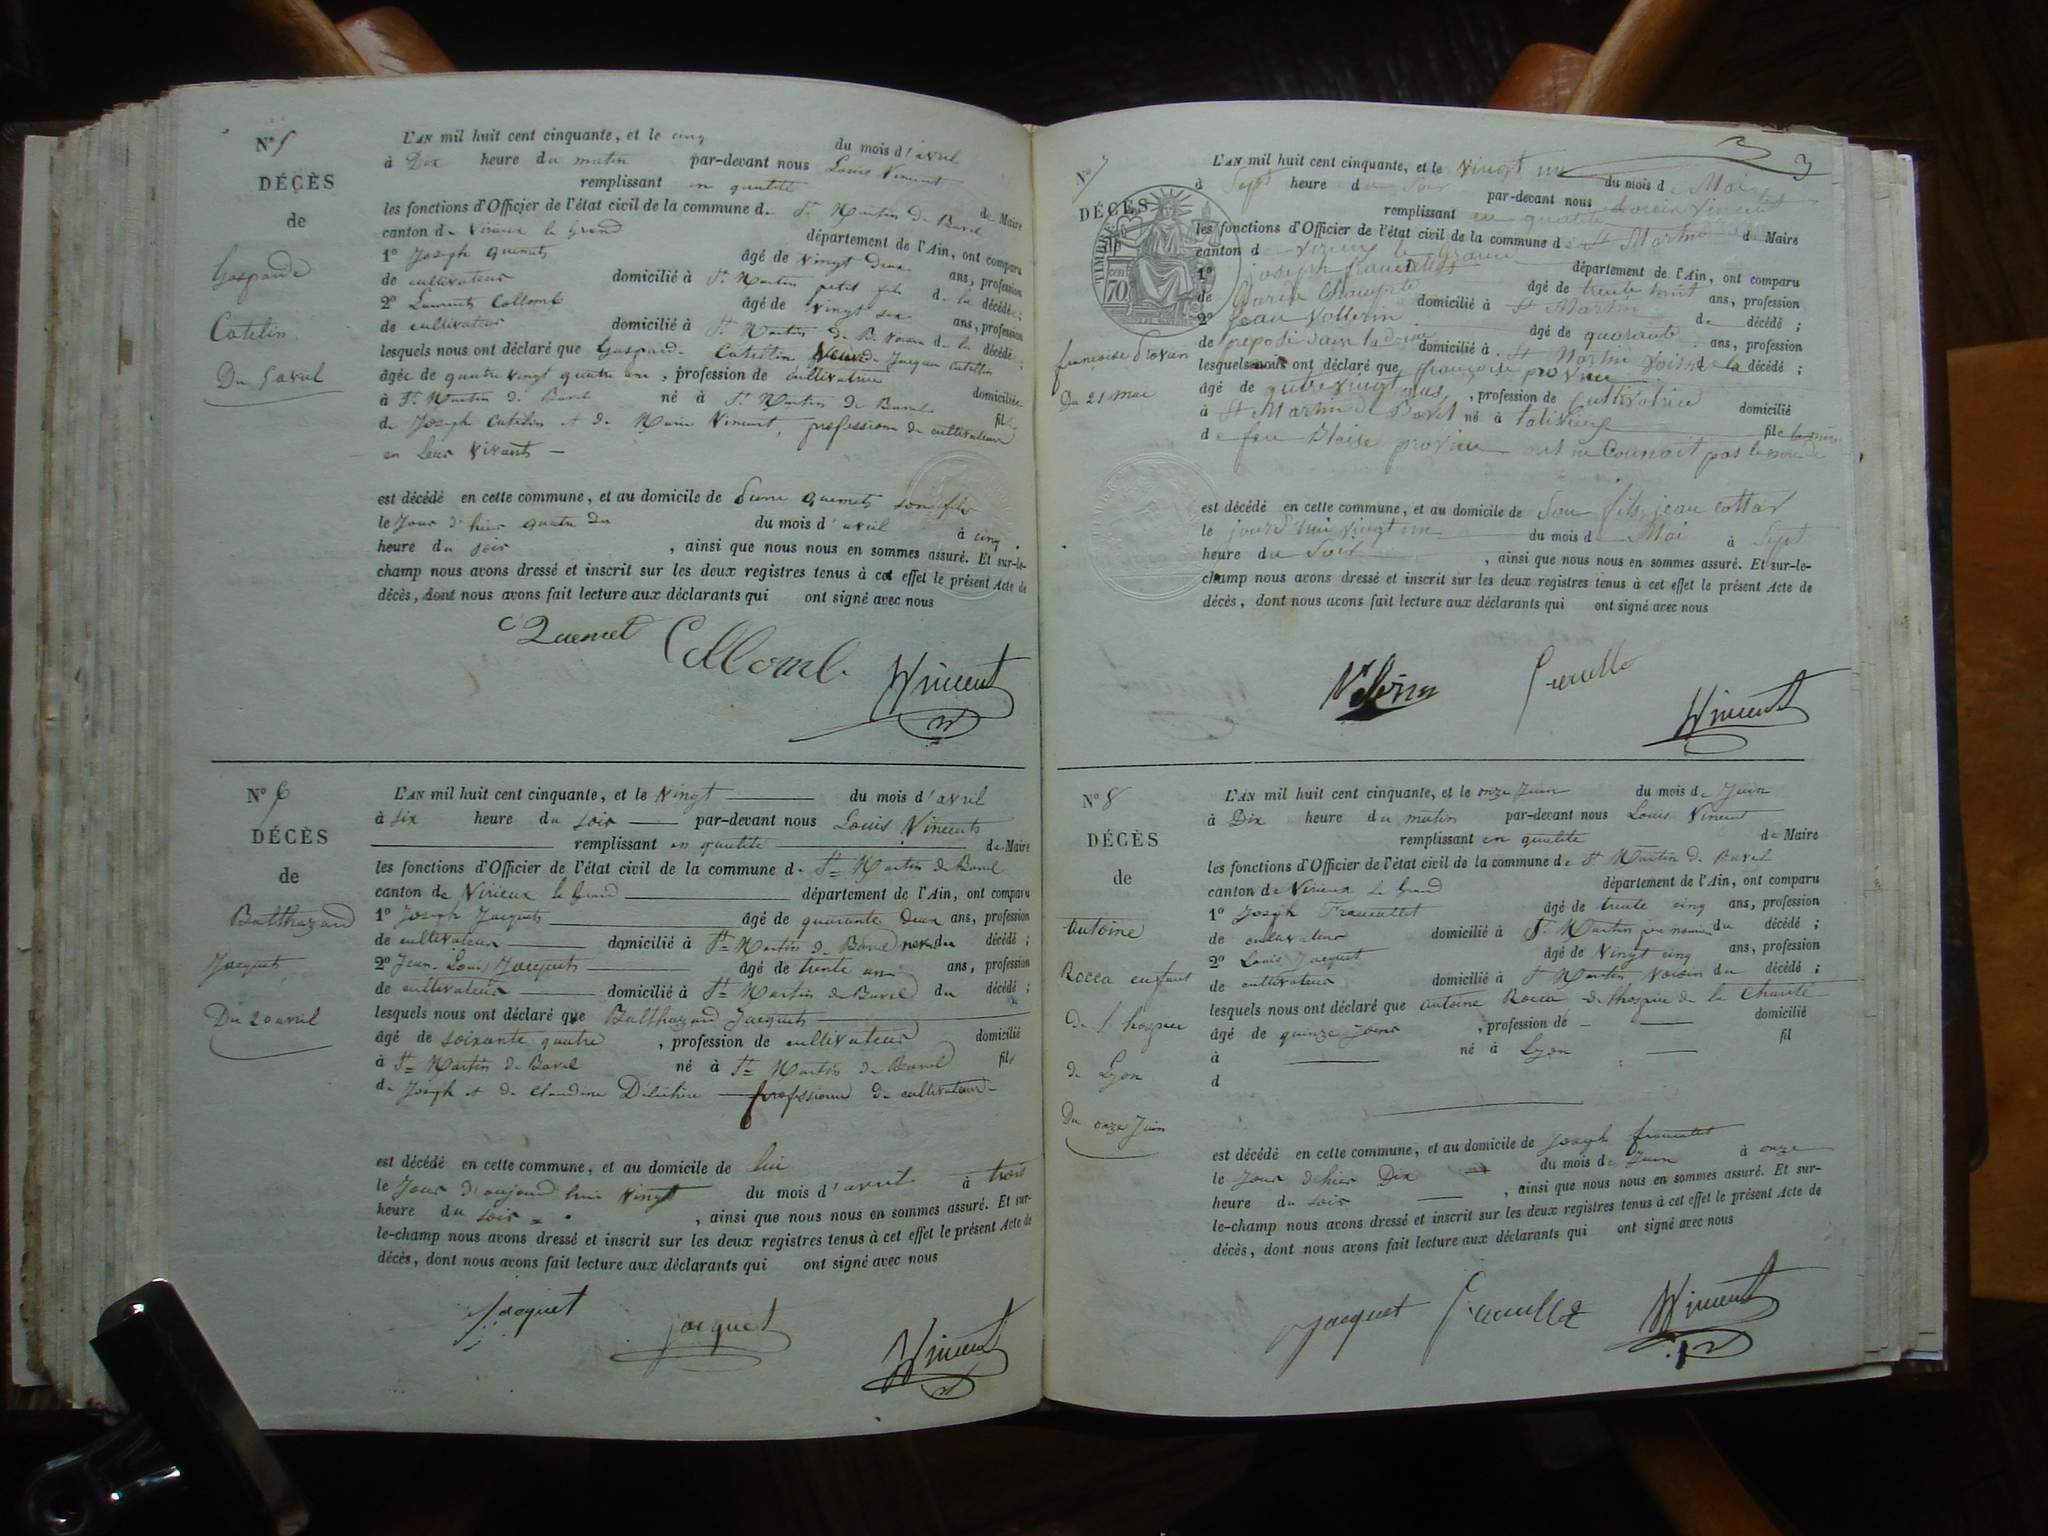 N° 5
DÉCÈS
de
Gasparde
Catelin
Du 5 avril
L'AN mil huit cent cinquante, et le cinq du mois d'avril
à Dix heure du matin par-devant nous Louis Vincent
remplissant en qualité de Maire
les fonctions d'Officier de l'état civil de la commune de St Martin de Bavel
canton de Virieux le Grand département de l'Ain, ont comparu
1° Joseph quemets âgé de vingt deux ans, profession
de cultivateur domicilié à St Martin petit fils de la décédée ;
2° Laurent Collomb âgé de vingt six ans, profession
de cultivateur domicilié à St Martin de B. voisin de la décédée ;
lesquels nous ont déclaré que Gasparde Catellin Veuve de Jacques Catellin
âgée de quatre vingt quatre ans, profession de cultivatrice domiciliée
à St Martin de Bavel né à St Martin de Bavel fille
de Joseph Catelin et de Marie Vincent, profession de cultivateur
en leur vivants
est décédé en cette commune, et au domicile de quemets son fils
le Jour d'hier quatre du du mois d'avril à cinq
heure du soir, ainsi que nous nous en sommes assuré. Et sur-le-
champ nous avons dressé et inscrit sur les deux registres tenus à cet effet le présent Acte de
décès, dont nous avons fait lecture aux déclarants qui ont signé avec nous
Quemet Collomb Vincent
N° 6
DÉCÈS
de
Balthazard
Jacquets
Du 20 avril
L'AN mil huit cent cinquante, et le Vingt du mois d'avril
à six heure du soir par-devant nous Louis Vincents
remplissant en qualité de Maire
les fonctions d'Officier de l'état civil de la commune de St Martin de Bavel
canton de Virieux le Grand département de l'Ain, ont comparu
1° Joseph Jacquets âgé de quarante deux ans, profession
de cultivateur domicilié à St Martin de Bavel neveu du décédé ;
2° Jean-Louis Jacquets âgé de trente ans, profession
de cultivateur domicilié à St Martin de Bavel du décédé ;
lesquels nous ont déclaré que Balthazard Jacquets
âgé de soixante quatre, profession de cultivateur domicilié
à St Martin de Bavel né à St Martin de Bavel fils
de Joseph et de Claudine profession de cultivateur
est décédé en cette commune, et au domicile de lui
le Jour d'aujourd'hui Vingt du mois d'avril à trois
heure du soir, ainsi que nous nous en sommes assuré. Et sur-
le-champ nous avons dressé et inscrit sur les deux registres tenus à cet effet le présent Acte de
décès, dont nous avons fait lecture aux déclarants qui ont signé avec nous
Jacquet jacquet Vincent
3
N° 7
DÉCÈS
TIMBRE
70 cen
françoise
Du 21 mai
L'AN mil huit cent cinquante, et le vingt un du mois de Mai
à Sept heure du Soir par-devant nous Vincent
remplissant en qualité de Maire
les fonctions d'Officier de l'état civil de la commune de St Martin
canton de Virieux le Grand département de l'Ain, ont comparu
1° joseph francillet âgé de trente huit ans, profession
de Garde Champetre domicilié à St Martin de décédé ;
2° jean Vollerin âgé de quarante ans, profession
de préposé domicilié à St Martin voisin de la décédé ;
lesquels nous ont déclaré que françoise
âgé de quatre vingt, profession de Cultivatrice domicilié
à St Martin de Bavel né à talissieu fille
de feu Blaise ont ne Connait pas le nom de
est décédé en cette commune, et au domicile de Son fils jean
le jourd'hui vingt un du mois de Mai à Sept
heure du Soir, ainsi que nous nous en sommes assuré. Et sur-le-
champ nous avons dressé et inscrit sur les deux registres tenus à cet effet le présent Acte de
décès, dont nous avons fait lecture aux déclarants qui ont signé avec nous
Vincent
N° 8
DÉCÈS
de
Antoine
Rocca enfant
de l'hospice
de Lyon
Du onze Juin
L'AN mil huit cent cinquante, et le onze Juin du mois de Juin
à Dix heure du matin par-devant nous Louis Vincent
remplissant en qualité de Maire
les fonctions d'Officier de l'état civil de la commune de St Martin de Bavel
canton de Virieux le Grand département de l'Ain, ont comparu
1° Joseph Francillet âgé de trente cinq ans, profession
de cultivateur domicilié à St Martin du décédé ;
2° Louis Jacquet âgé de vingt cinq ans, profession
de cultivateur domicilié à St Martin voisin du décédé ;
lesquels nous ont déclaré que Antoine Rocca de l'hospice de la Charité
âgé de quinze Jours, profession de domicilié
à né à Lyon fil
d
est décédé en cette commune, et au domicile de Joseph francillet
le Jour d'hier Dix du mois de Juin à onze
heure du soir, ainsi que nous nous en sommes assuré. Et sur-
le-champ nous avons dressé et inscrit sur les deux registres tenus à cet effet le présent Acte de
décès, dont nous avons fait lecture aux déclarants qui ont signé avec nous
Jacquet Vincent